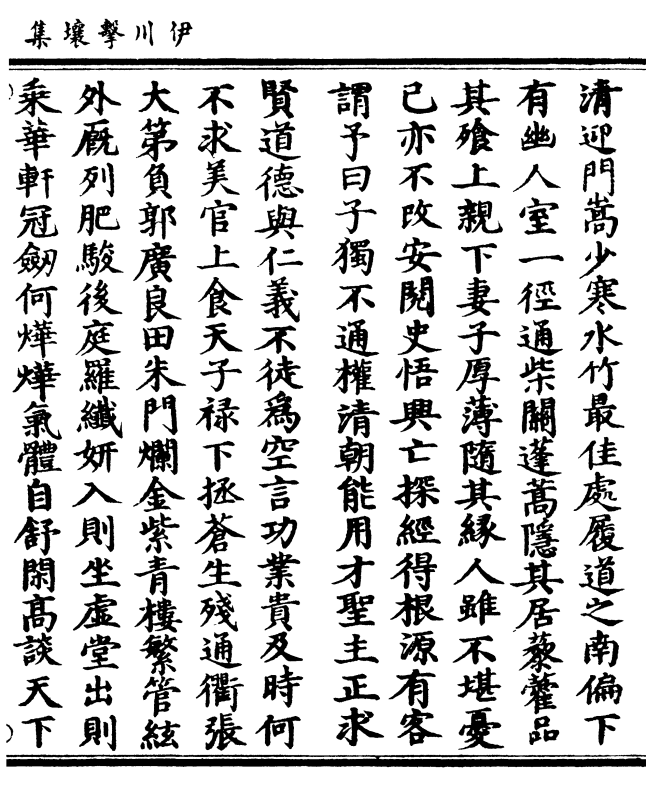 伊川擊壤集
清迎門嵩少寒水竹最佳處履道之南偏下
有幽人室一徑通柴關蓬蒿隱其居藜藿品
其飱上親下妻子厚薄隨其緣人雖不堪憂
已亦不改安閱史悟興亡探經得根源有客
謂予曰子獨不通權清朝能用才聖主正求
賢道德與仁義不徒爲空言功業貴及時何
不求美官上食天子禄下拯蒼生殘通衢張
大第負郭廣良田朱門爛金紫青樓繁管絃
外厩列肥駿後庭羅纖妍入則坐虛堂出則
乘華軒冠劒何燁燁氣體自舒閑高談天下